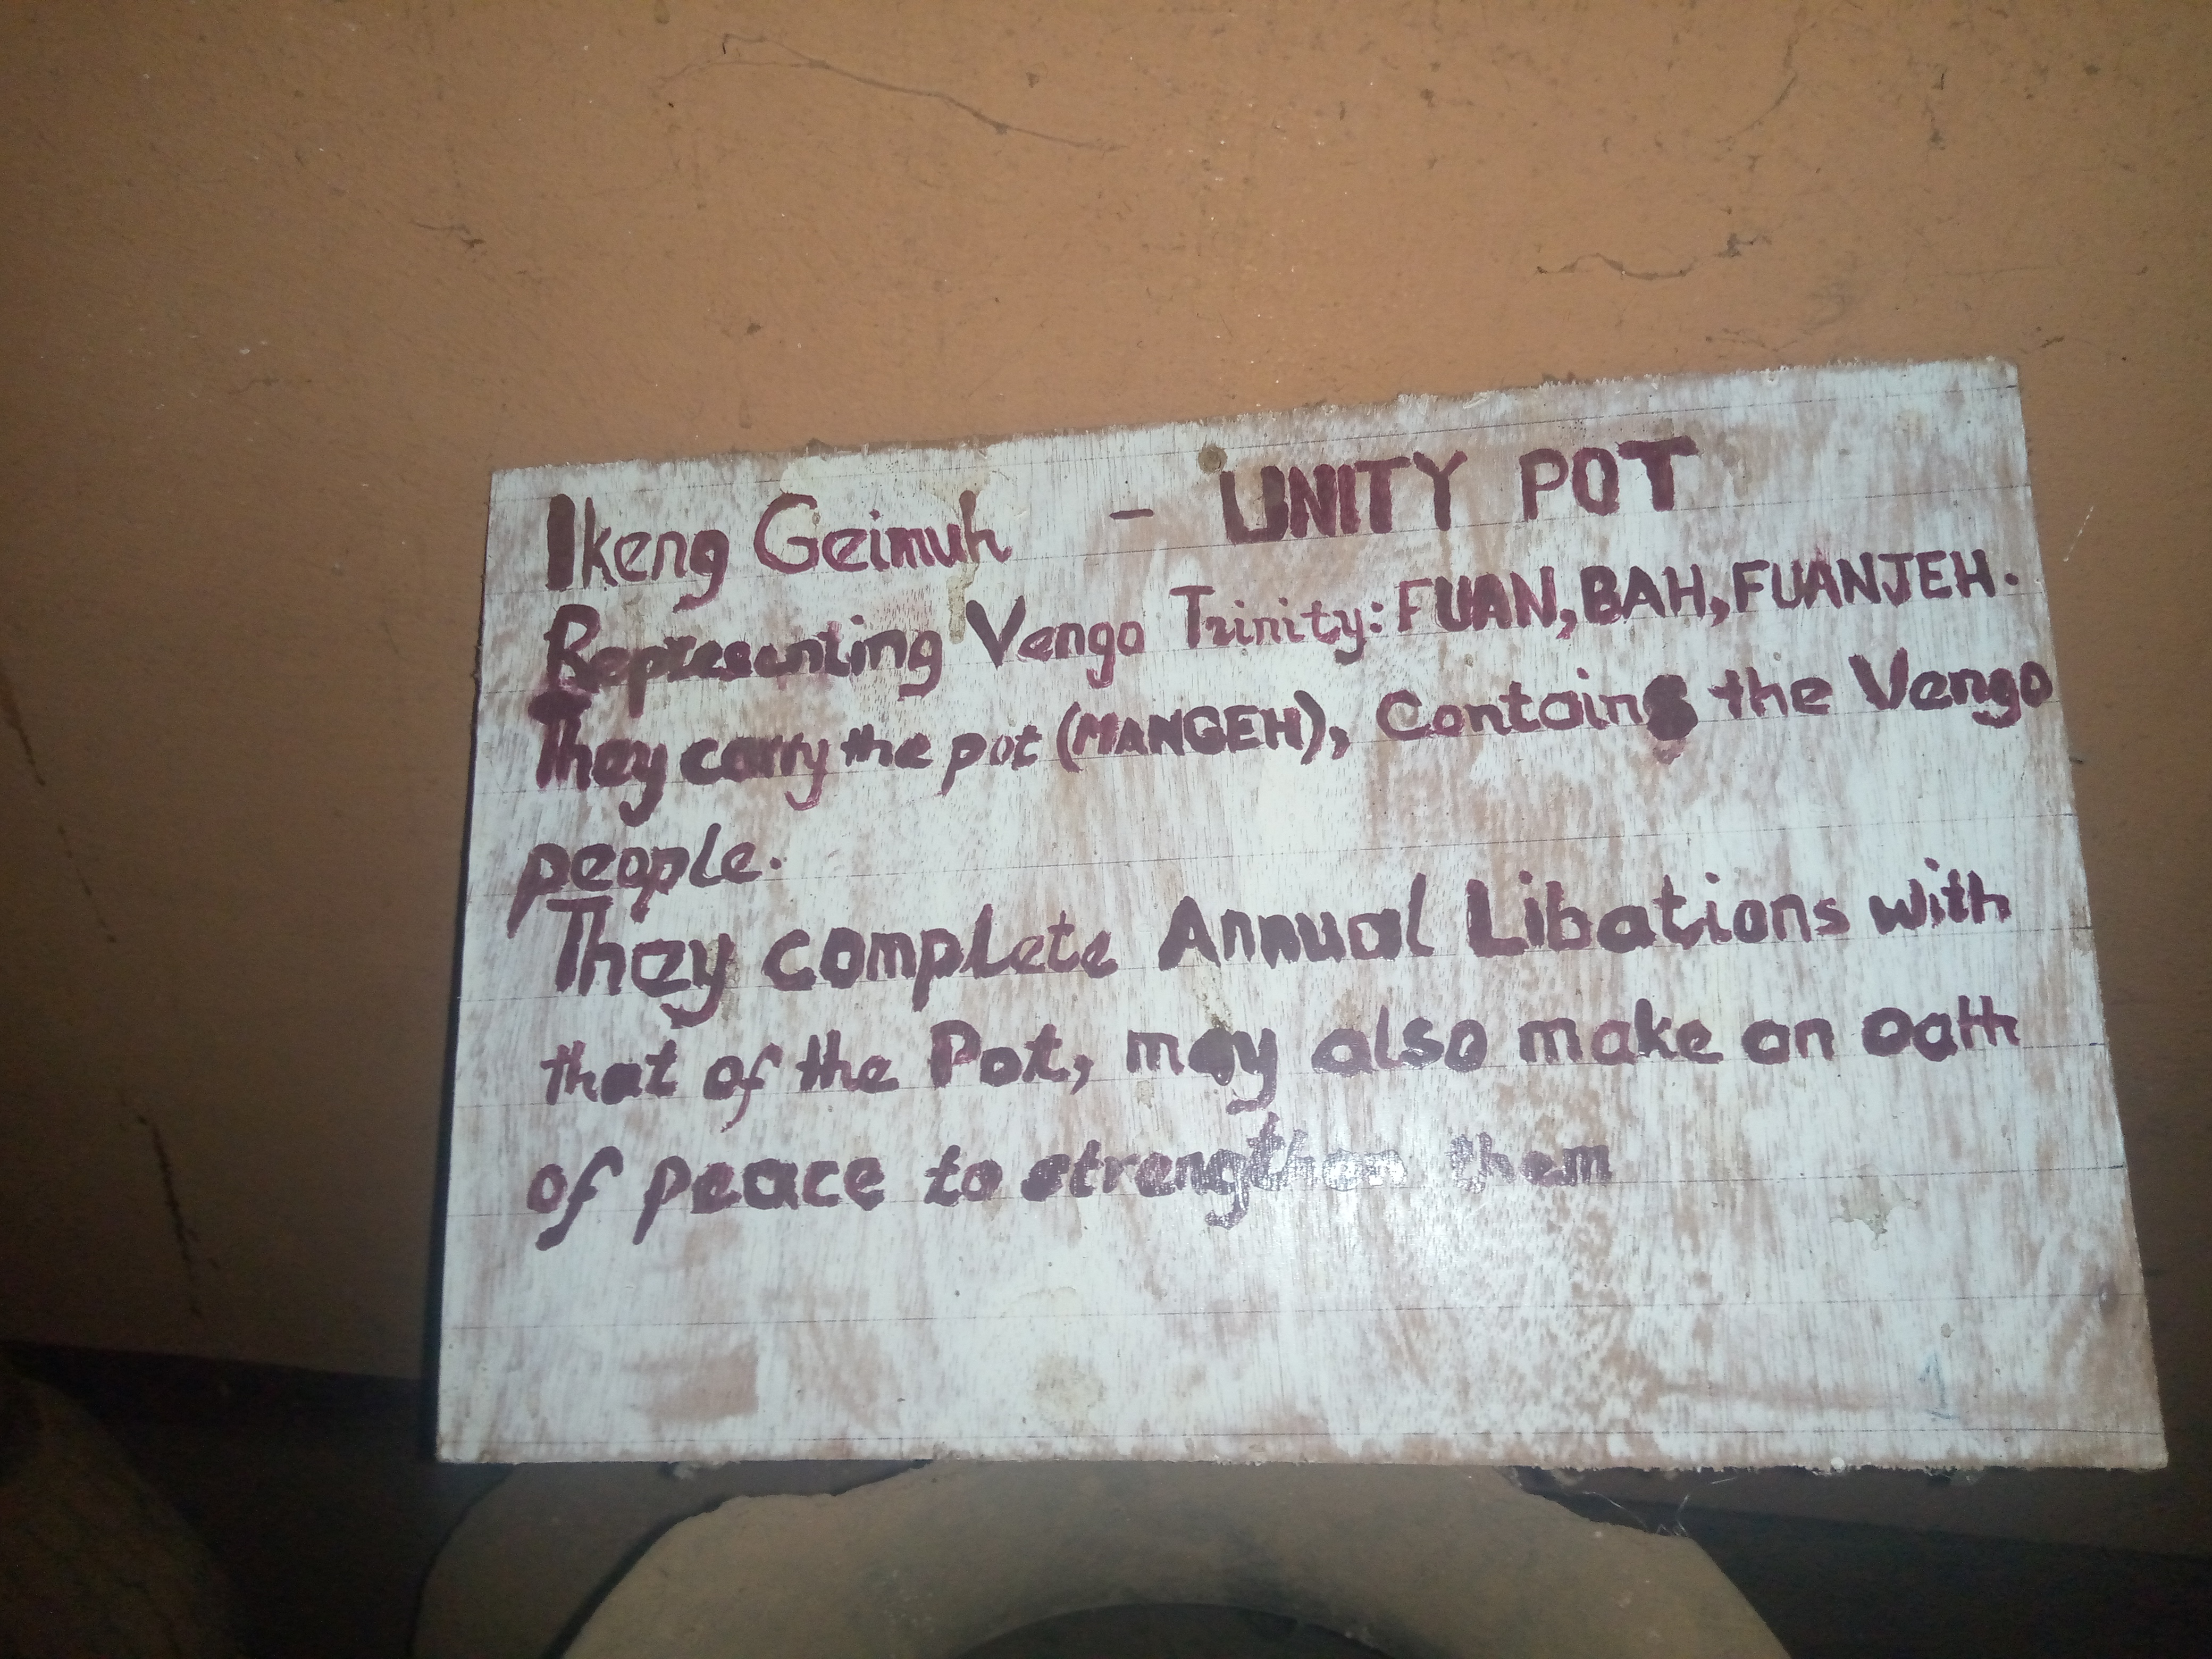 Ikeng Geimuh - UNITY POT
Representing Vengo Trinity: FUAN, BAH, FUANJEH.
They carry the pot (MANGEH), Contains the Vengo
people.
They complete Annual Libations with
that of the Pot, may also make an oath
of peace to strengthen them